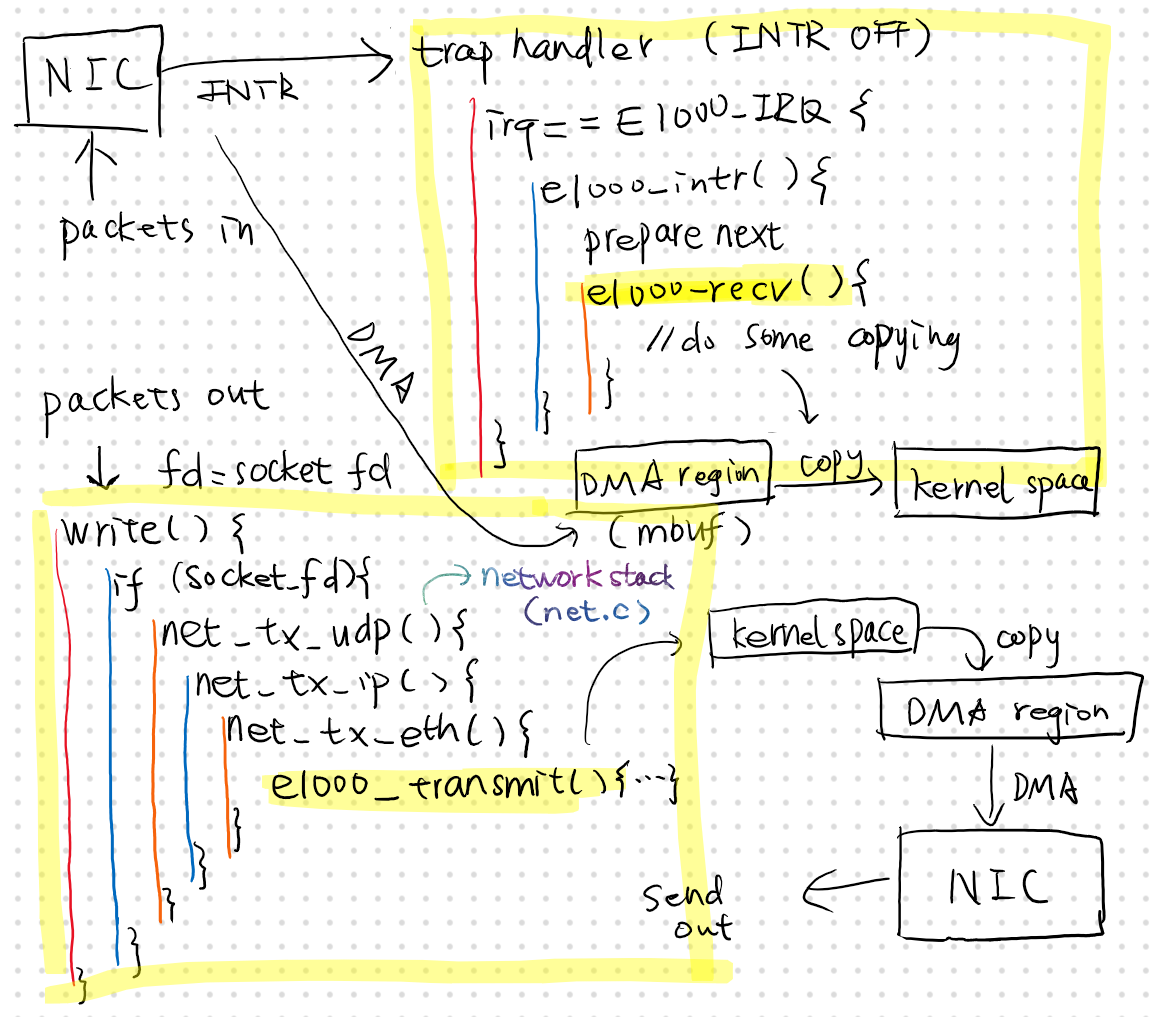 NIC
INTR
trap handler (INTR OFF)
irq == E1000_IRQ {
e1000_intr() {
prepare next
e1000-recv() {
// do some copying
}
}
}
packets in
DMA
DMA region
(mbuf)
copy
kernel space
packets out
fd = socket fd
write() {
if (socket_fd) {
net_tx_udp() {
net_tx_ip() {
net_tx_eth() {
e1000_transmit() {...}
}
}
}
}
}
network stack
(net.c)
kernel space
copy
DMA region
DMA
NIC
send
out